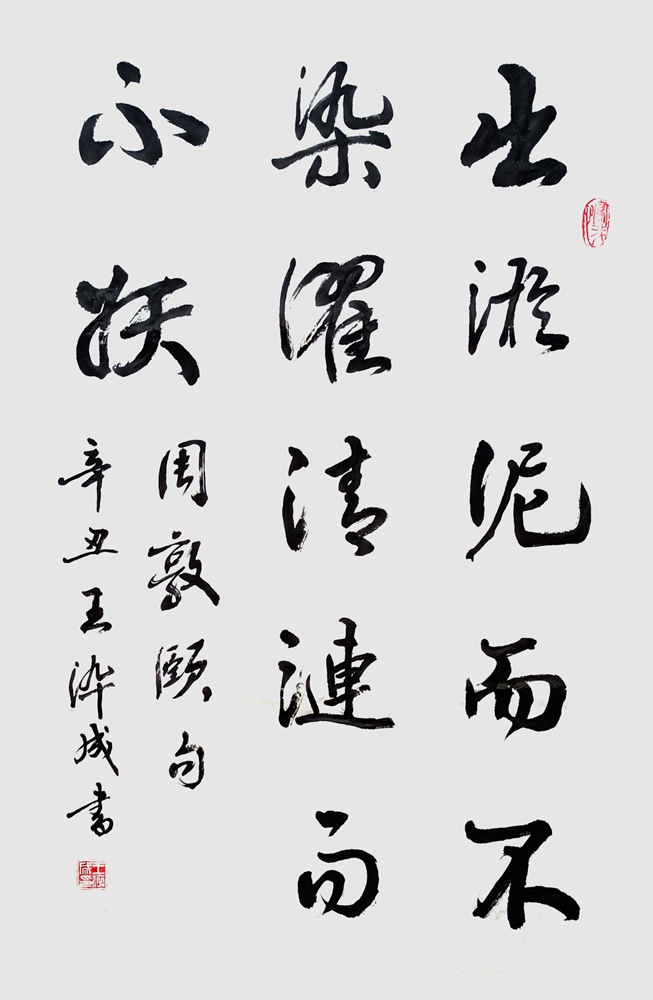 出淤泥而不
染濯清漣而
不妖
周敦頤句
辛丑王成書